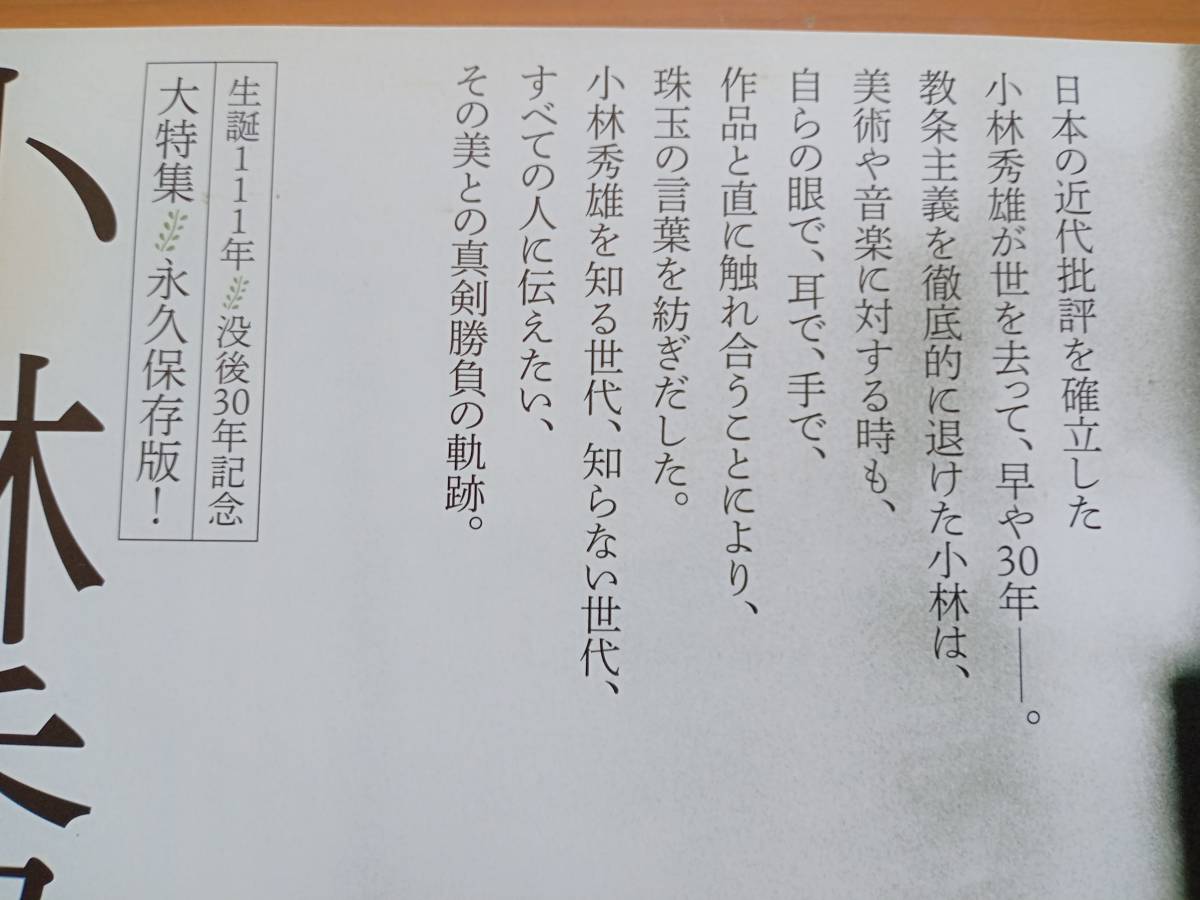 日本の近代批評を確立した
小林秀雄が世を去って、早や30年——。
教条主義を徹底的に退けた小林は、
美術や音楽に対する時も、
自らの眼で、耳で、手で、
作品と直に触れ合うことにより、
珠玉の言葉を紡ぎだした。
小林秀雄を知る世代、知らない世代、
すべての人に伝えたい、
その美との真剣勝負の軌跡。
生誕111年 没後30年記念
大特集 永久保存版！
小林秀